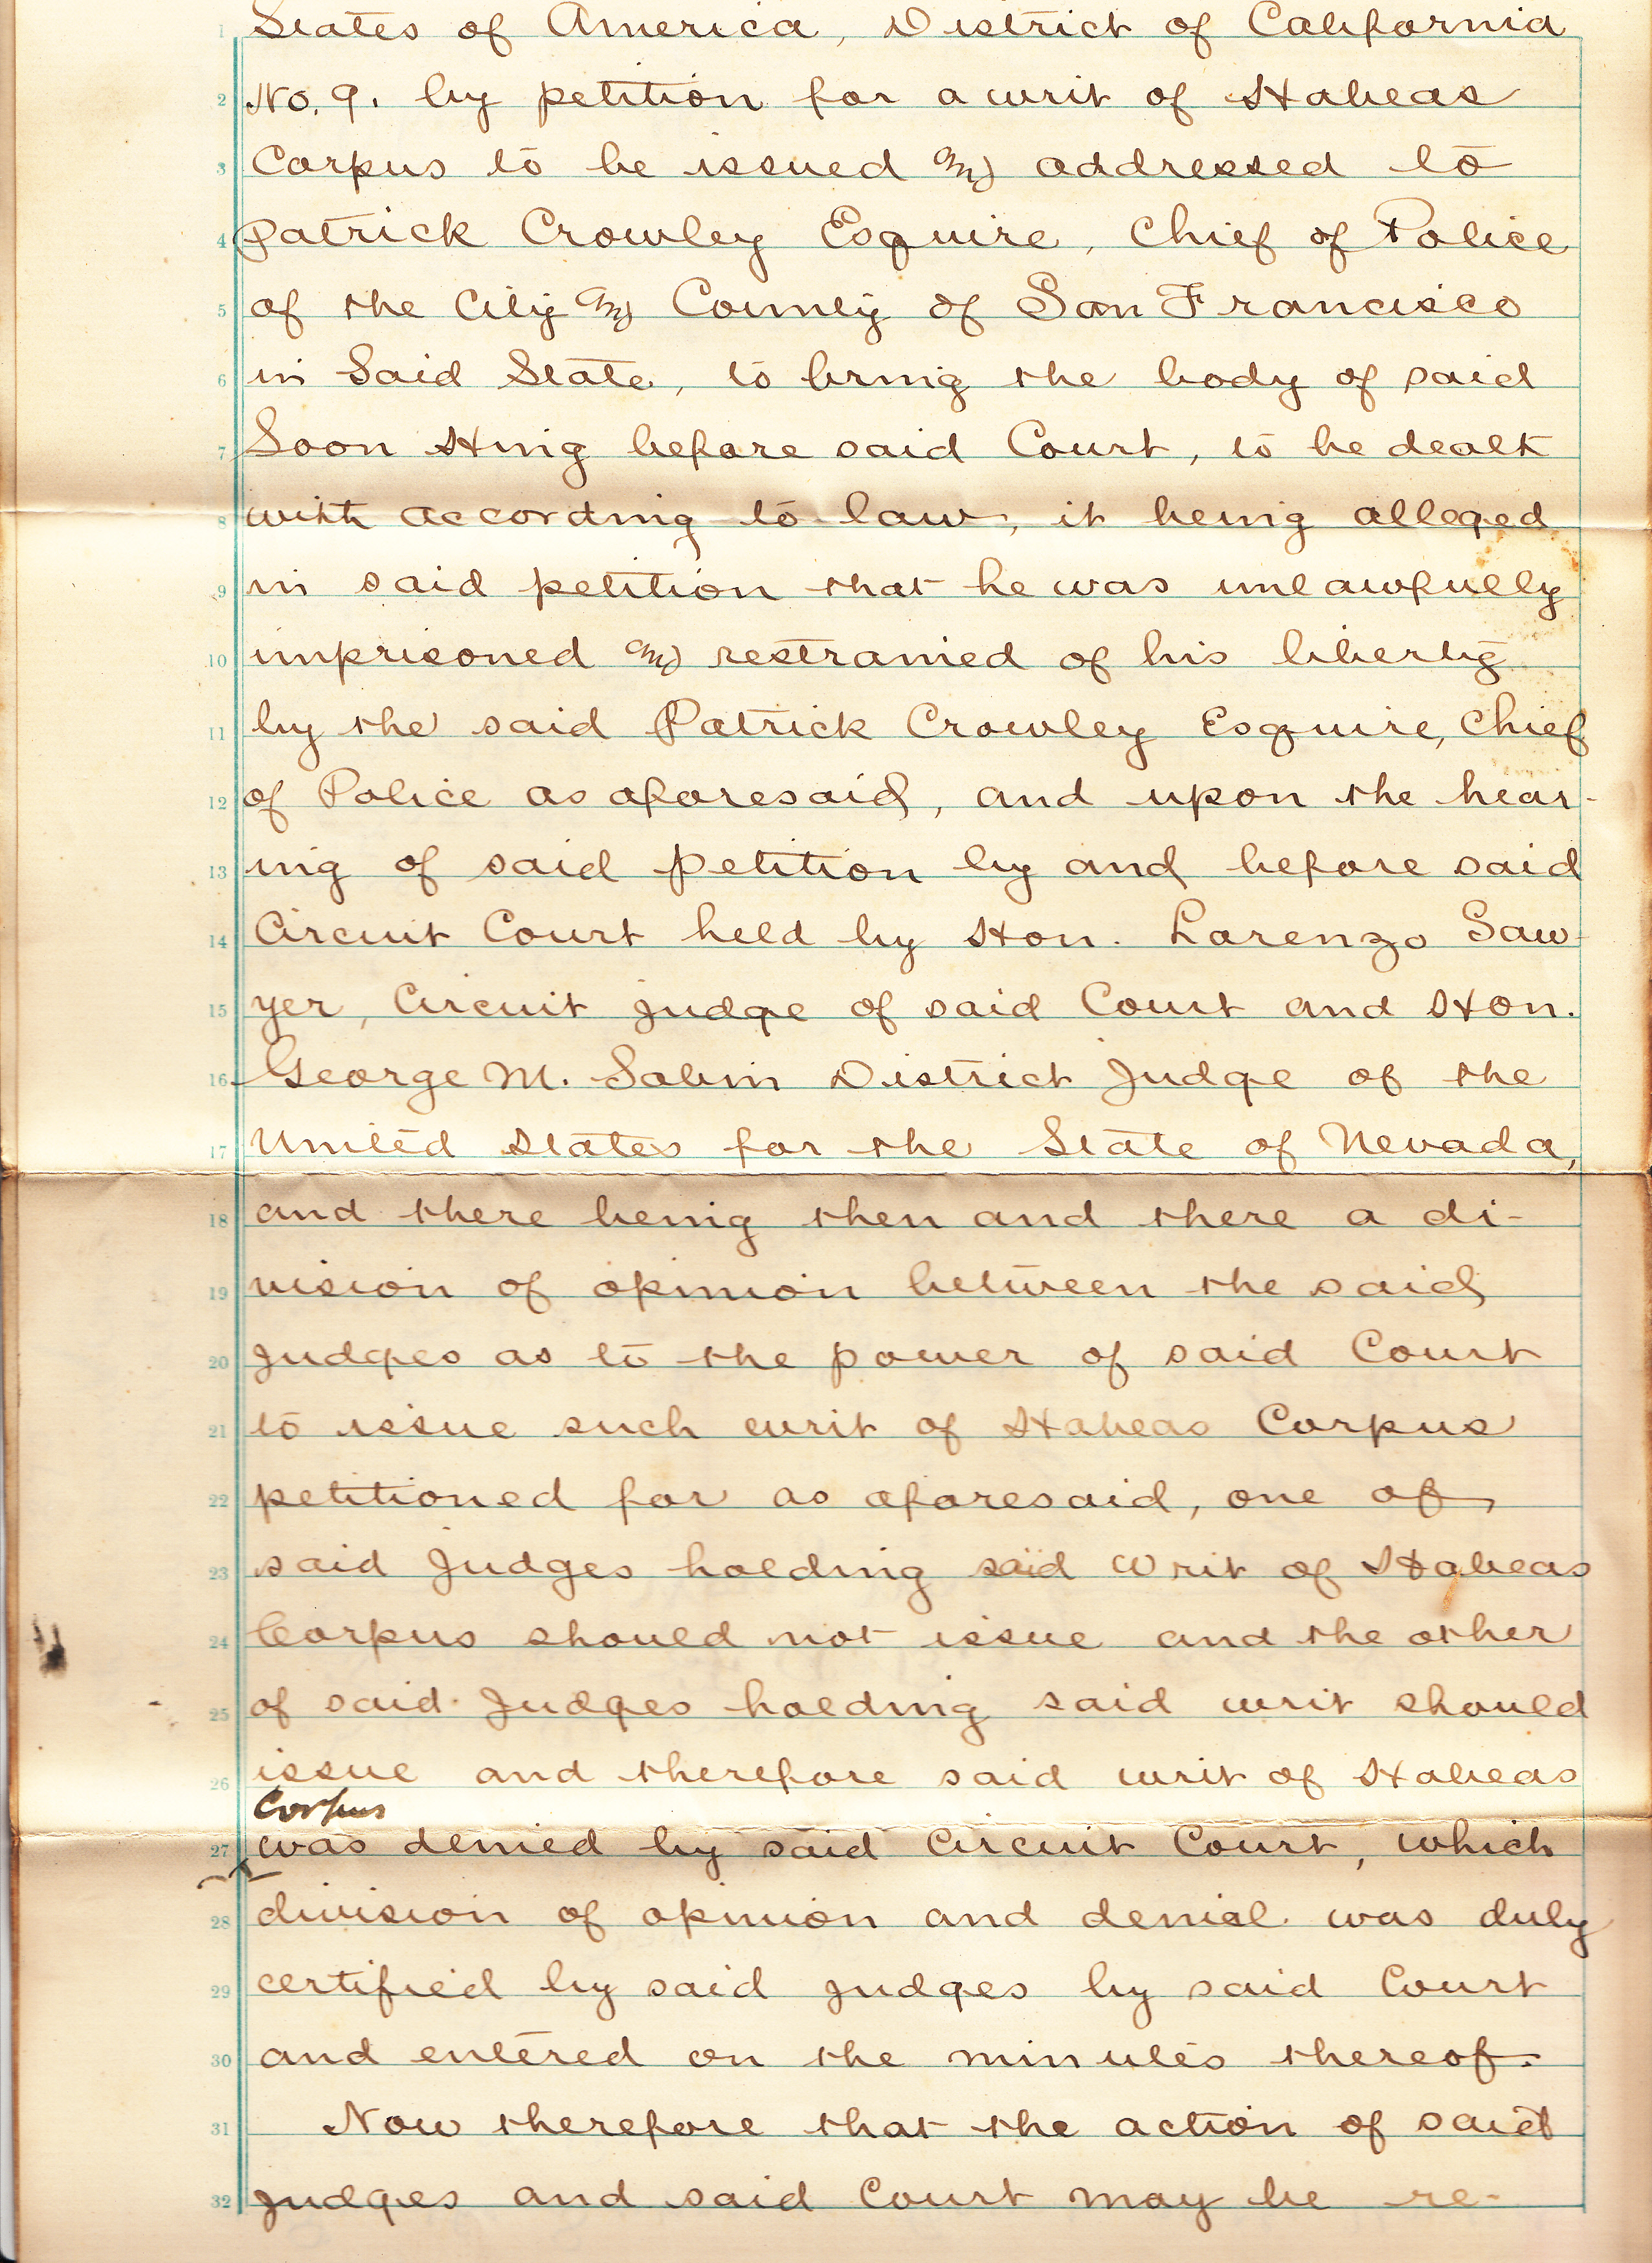 1 States of America, District of California
2 No. 9. by petition for a writ of Habeas
3 Corpus to be issued and addressed to
4 Patrick Crowley Esquire, Chief of Police
5 of the City and County of San Francisco
6 in Said State, to bring the body of said
7 Soon Hing before said Court, to be dealt
8 with according to law, it being alleged
9 in said petition that he was unlawfully
10 imprisoned and restrained of his liberty
11 by the said Patrick Crowley Esquire, Chief
12 of Police as aforesaid, and upon the hear-
13 ing of said petition by and before said
14 Circuit Court held by Hon. Lorenzo Saw-
15 yer, Circuit judge of said Court and Hon.
16 George M. Sabin District Judge of the
17 United States for the State of Nevada,
18 and there being then and there a di-
19 vision of opinion between the said
20 judges as to the power of said Court
21 to issue such writ of Habeas Corpus
22 petitioned for as aforesaid, one of
23 said Judges holding said Writ of Habeas
24 Corpus should not issue and the other
25 of said Judges holding said writ should
26 issue and therefore said writ of Habeas
Corpus
27 was denied by said Circuit Court, which
28 division of opinion and denial was duly
29 certified by said judges by said Court
30 and entered on the minutes thereof.
31 Now therefore that the action of said
32 judges and said Court may be re-